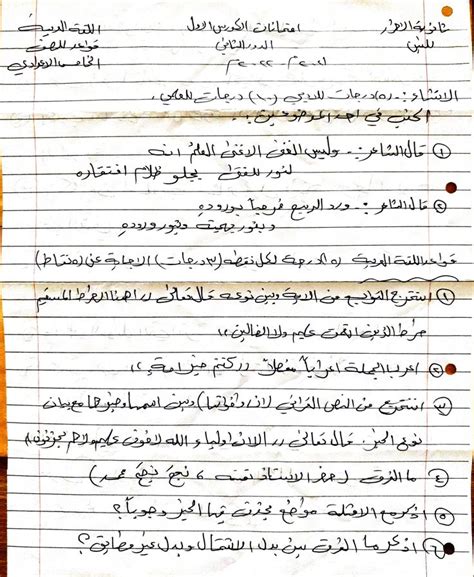 ثانوية الاحرار امتحانات الكورس الاول اللغة العربية
للبنين الدور الثاني قواعد للصف
٢٠٢١م - ٢٠٢٢م الخامس الاعدادي
الانشاء :- (٥) درجات للادبي (١٠) درجات للعلمي .
اكتب في احد الموضوعين :.
١) قال الشاعر :- وليس الغنى الا غنى العلم انه
لنور للفتى يجلو ظلام افتقاره
٢) قال الشاعر :- ورد الربيع فمرحباً بوروده
وبنور بهجته ونور وروده
قواعد اللغة العربية (٥) درجة لكل نقطة (٣ درجات) الاجابة عن (٥ نقاط)
١) استخرج التوابع من الاية وبين نوعه قال تعالى (( اهدنا الصراط المستقيم
صراط الذين انعمت عليهم ولا الضالين ))
٢) اعرب الجملة اعراباً مفصلاً (( كنتم خير امة ))
٣) استخرج من النص القرآني (ان واخواتها) وبين اسمها وخبرها مع بيان
نوع الخبر. قال تعالى (( الا ان اولياء الله لا خوف عليهم ولا هم يحزنون ))
٤) ما الفرق (حضر الاستاذ نفسه ، نجح نجح محمد)
٥) اذكر مع الامثلة مواضع يحذف فيها الخبر وجوباً ؟
٦) اذكر ما الفرق بين بدل الاشتمال وبدل غير مطابق ؟